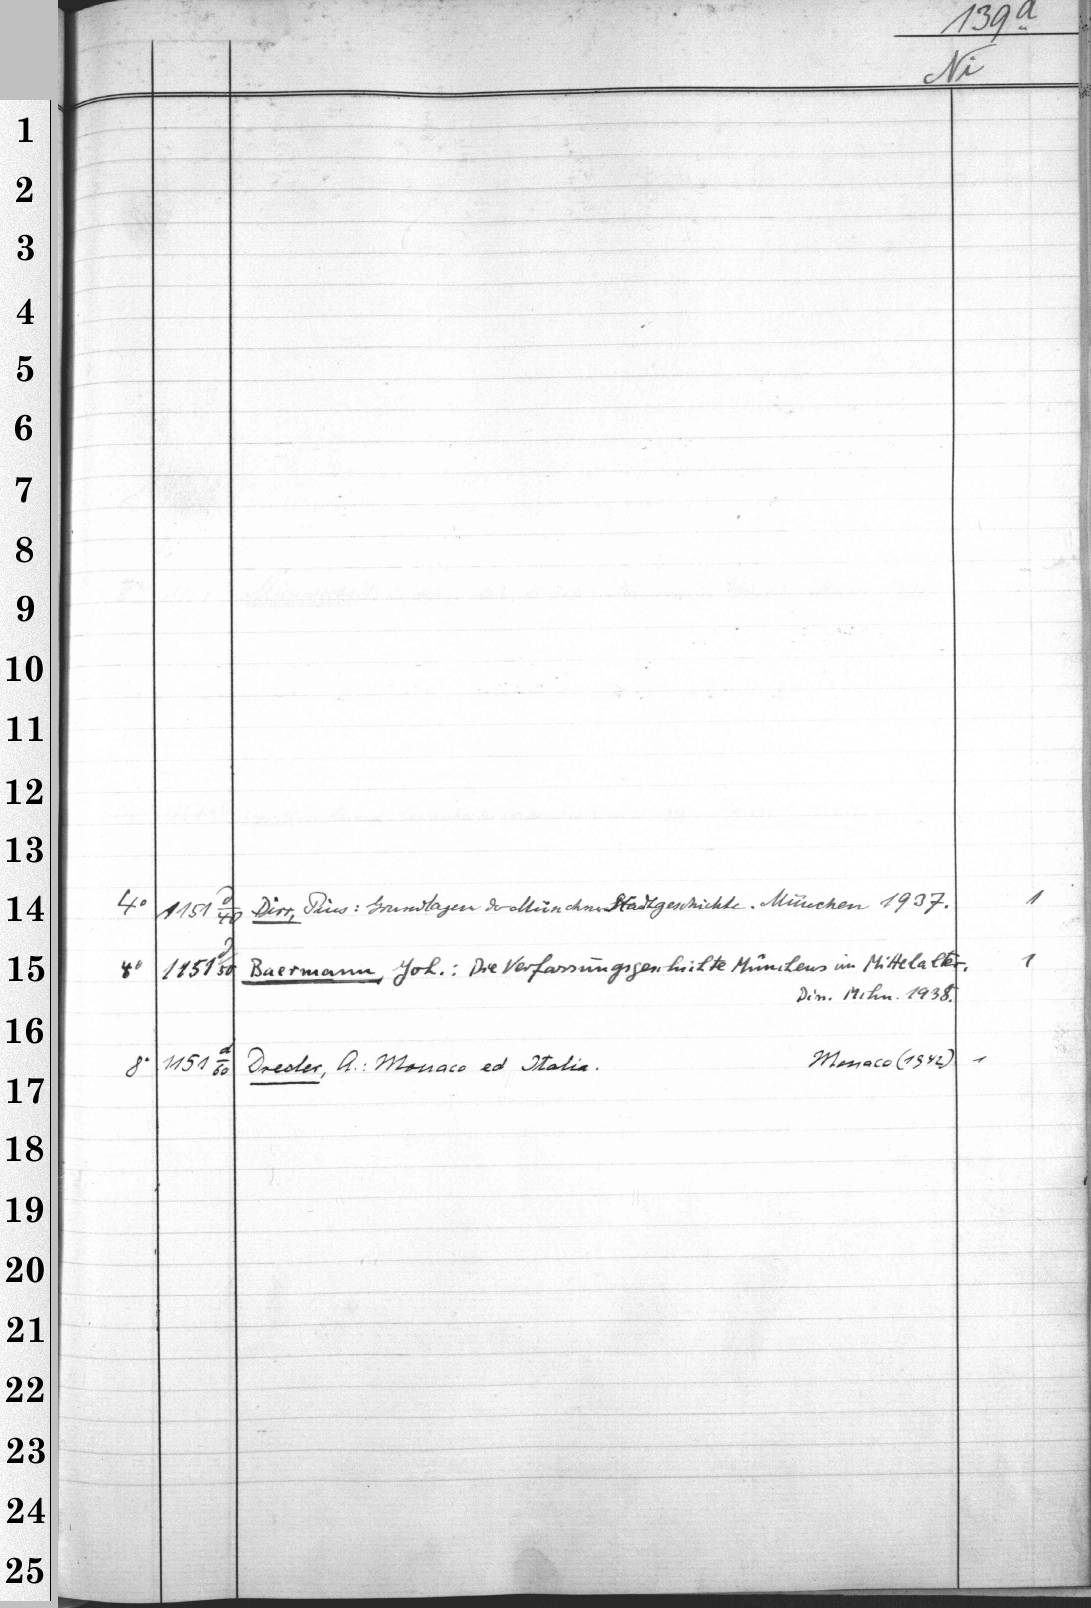 139a
Ni
1
2
3
4
5
6
7
8
9
10
11
12
13
14 4° 1151 d/40 Dirr, Pius: Grundlagen der Münchner Stadtgeschichte. München 1937. 1
15 4° 1151 d/50 Baermann, Joh.: Die Verfassungsgeschichte Münchens im Mittelalter. 1
Diss. Mchn. 1938.
16
8° 1151 d/60 Dresler, A.: Monaco ed Italia. Monaco (1942) 1
17
18
19
20
21
22
23
24
25